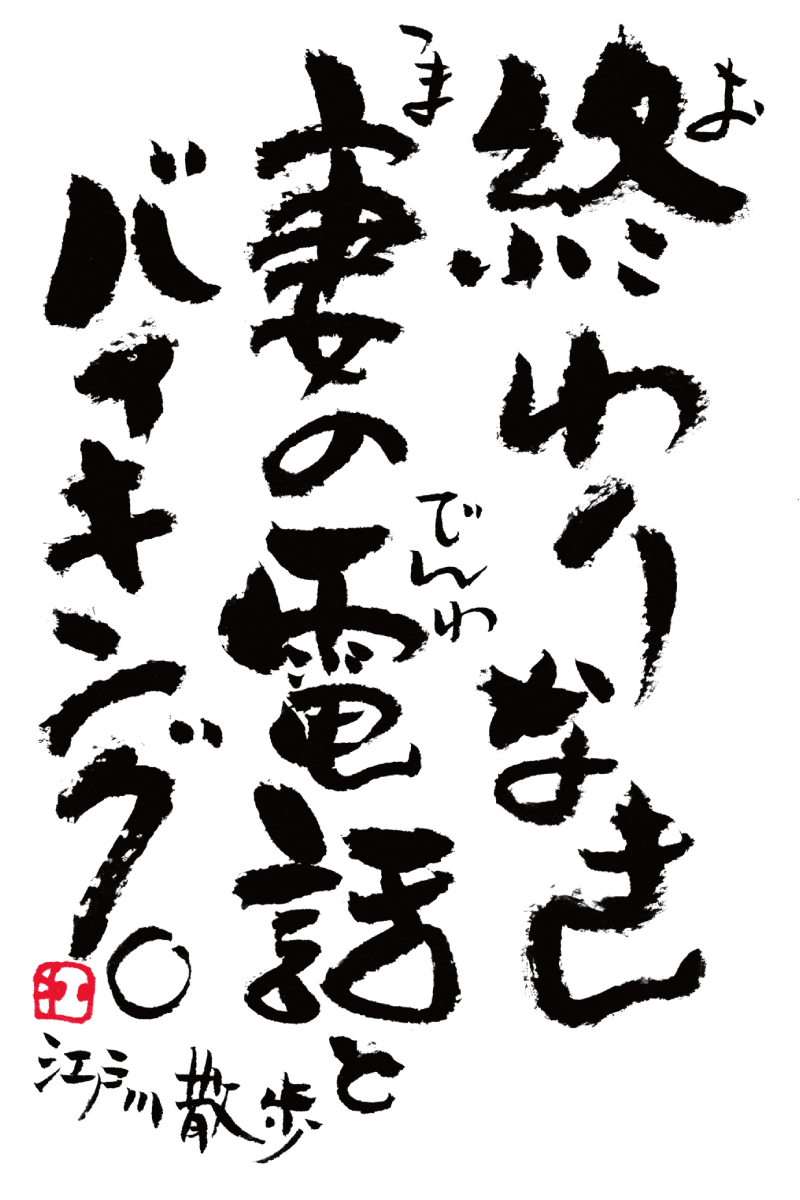 お
終わりなき
つま
でんわ
妻の電話と
バイキング。
江戸川散歩
江